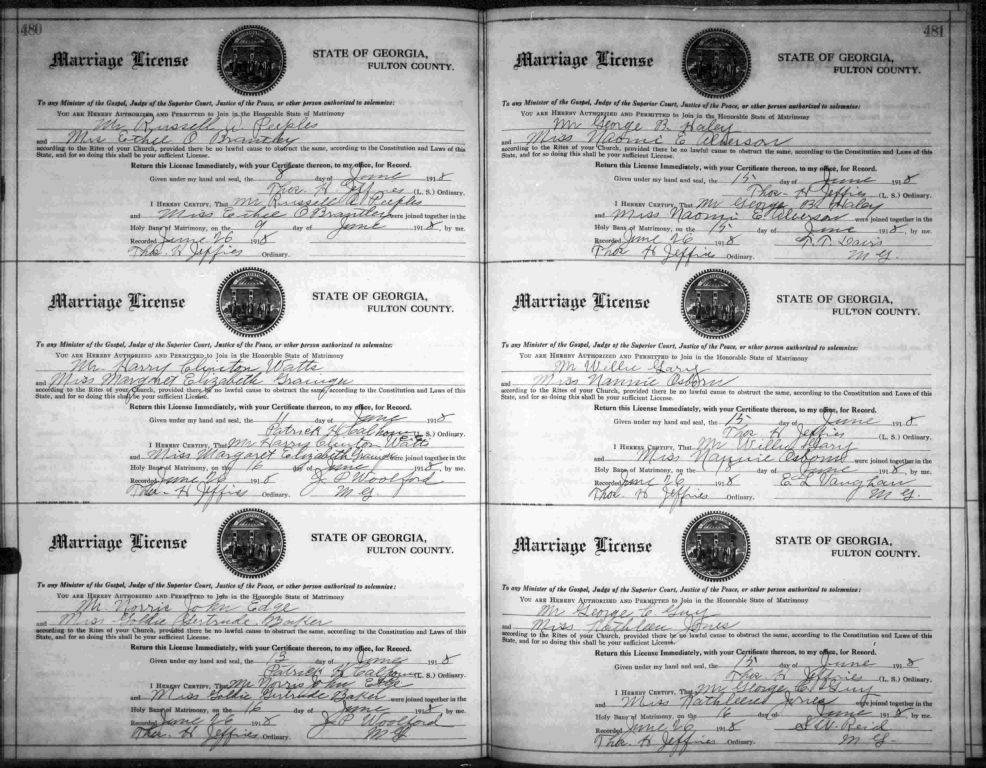 480
Marriage License
STATE OF GEORGIA,
FULTON COUNTY.
To any Minister of the Gospel, Judge of the Superior Court, Justice of the Peace, or other person authorized to solemnize:
YOU ARE HEREBY AUTHORIZED AND PERMITTED to Join in the Honorable State of Matrimony
Mr Russell W. Peeples
and Miss Ethel O Brantley
according to the Rites of your Church, provided there be no lawful cause to obstruct the same, according to the Constitution and Laws of this
State, and for so doing this shall be your sufficient License.
Return this License Immediately, with your Certificate thereon, to my office, for Record.
Given under my hand and seal, the 8 day of June 1918
Thos. H Jeffries (L. S.) Ordinary.
I HEREBY CERTIFY, That Mr Russell Peeples
and Miss Ethel O Brantley were joined together in the
Holy Bans of Matrimony, on the 9 day of June 1918, by me.
Recorded June 26 1918
Thos. H Jeffries Ordinary.
Marriage License
STATE OF GEORGIA,
FULTON COUNTY.
To any Minister of the Gospel, Judge of the Superior Court, Justice of the Peace, or other person authorized to solemnize:
YOU ARE HEREBY AUTHORIZED AND PERMITTED to Join in the Honorable State of Matrimony
Mr. Harry Clinton Watts
and Miss Margaret Elizabeth Grainger
according to the Rites of your Church, provided there be no lawful cause to obstruct the same, according to the Constitution and Laws of this
State, and for so doing this shall be your sufficient License.
Return this License Immediately, with your Certificate thereon, to my office, for Record.
Given under my hand and seal, the 11 day of June 1918
Patrick H Calhoun (L. S.) Ordinary.
I HEREBY CERTIFY, That Mr Harry Clinton Watts
and Miss Margaret Elizabeth Grainger were joined together in the
Holy Bans of Matrimony, on the 16 day of June 1918, by me.
Recorded June 26 1918 J C Woolford
Thos. H Jeffries Ordinary. M. G.
Marriage License
STATE OF GEORGIA,
FULTON COUNTY.
To any Minister of the Gospel, Judge of the Superior Court, Justice of the Peace, or other person authorized to solemnize:
YOU ARE HEREBY AUTHORIZED AND PERMITTED to Join in the Honorable State of Matrimony
Mr. Norris John Edge
and Miss Goldie Gertrude Baker
according to the Rites of your Church, provided there be no lawful cause to obstruct the same, according to the Constitution and Laws of this
State, and for so doing this shall be your sufficient License.
Return this License Immediately, with your Certificate thereon, to my office, for Record.
Given under my hand and seal, the 13 day of June 1918
Patrick H Calhoun (L. S.) Ordinary.
I HEREBY CERTIFY, That Mr Norris John Edge
and Miss Goldie Gertrude Baker were joined together in the
Holy Bans of Matrimony, on the 16 day of June 1918, by me.
Recorded June 26 1918 Woolford
Thos. H Jeffries Ordinary. M G
481
Marriage License
STATE OF GEORGIA,
FULTON COUNTY.
To any Minister of the Gospel, Judge of the Superior Court, Justice of the Peace, or other person authorized to solemnize:
YOU ARE HEREBY AUTHORIZED AND PERMITTED to Join in the Honorable State of Matrimony
Mr George B. Haley
and Miss Naomi E Alverson
according to the Rites of your Church, provided there be no lawful cause to obstruct the same, according to the Constitution and Laws of this
State, and for so doing this shall be your sufficient License.
Return this License Immediately, with your Certificate thereon, to my office, for Record.
Given under my hand and seal, the 15 day of June 1918
Thos. H Jeffries (L. S.) Ordinary.
I HEREBY CERTIFY, That Mr George B. Haley
and Miss Naomi E Alverson were joined together in the
Holy Bans of Matrimony, on the 15 day of June 1918, by me.
Recorded June 26 1918 Davis
Thos H Jeffries Ordinary. M G
Marriage License
STATE OF GEORGIA,
FULTON COUNTY.
To any Minister of the Gospel, Judge of the Superior Court, Justice of the Peace, or other person authorized to solemnize:
YOU ARE HEREBY AUTHORIZED AND PERMITTED to Join in the Honorable State of Matrimony
Mr Willie
and Miss Nannie Osborn
according to the Rites of your Church, provided there be no lawful cause to obstruct the same, according to the Constitution and Laws of this
State, and for so doing this shall be your sufficient License.
Return this License Immediately, with your Certificate thereon, to my office, for Record.
Given under my hand and seal, the 15 day of June 1918
Thos H Jeffries (L. S.) Ordinary.
I HEREBY CERTIFY, That Mr Willie
and Miss Nannie Osborn were joined together in the
Holy Bans of Matrimony, on the day of June 1918, by me.
Recorded June 26 1918 E L Vaughan
Thos. H Jeffries Ordinary. M G.
Marriage License
STATE OF GEORGIA,
FULTON COUNTY.
To any Minister of the Gospel, Judge of the Superior Court, Justice of the Peace, or other person authorized to solemnize:
YOU ARE HEREBY AUTHORIZED AND PERMITTED to Join in the Honorable State of Matrimony
Mr George C Guy
and Miss Kathleen Jones
according to the Rites of your Church, provided there be no lawful cause to obstruct the same, according to the Constitution and Laws of this
State, and for so doing this shall be your sufficient License.
Return this License Immediately, with your Certificate thereon, to my office, for Record.
Given under my hand and seal, the 15 day of June 1918
Thos H Jeffries (L. S.) Ordinary.
I HEREBY CERTIFY, That Mr George C. Guy
and Miss Kathleen Jones were joined together in the
Holy Bans of Matrimony, on the 16 day of June 1918, by me.
Recorded June 26 1918 Reid
Thos. H Jeffries Ordinary. M G.